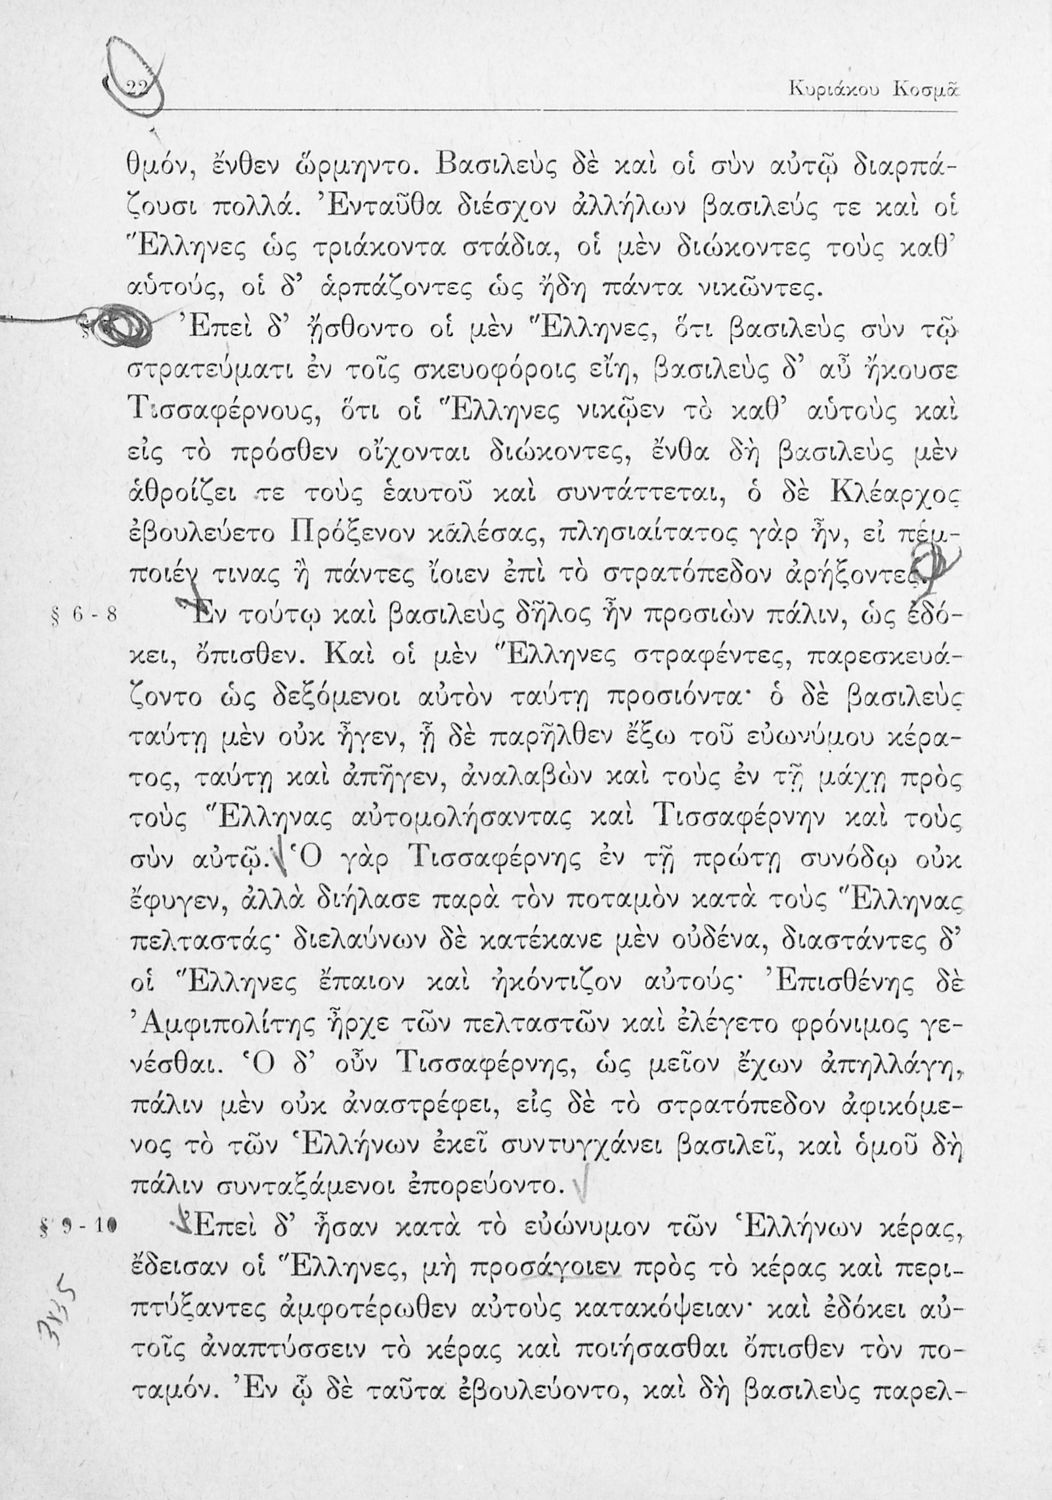 22 Κυριάκου Κοσμᾶ
θμόν, ἔνθεν ὥρμηντο. Βασιλεὺς δὲ καὶ οἱ σὺν αὐτῷ διαρπά-
ζουσι πολλά. Ἐνταῦθα διέσχον ἀλλήλων βασιλεύς τε καὶ οἱ
Ἕλληνες ὡς τριάκοντα στάδια, οἱ μὲν διώκοντες τοὺς καθ’
αὑτούς, οἱ δ’ ἁρπάζοντες ὡς ἤδη πάντα νικῶντες.
Ἐπεὶ δ’ ᾔσθοντο οἱ μὲν Ἕλληνες, ὅτι βασιλεὺς σὺν τῷ
στρατεύματι ἐν τοῖς σκευοφόροις εἴη, βασιλεὺς δ’ αὖ ἤκουσε
Τισσαφέρνους, ὅτι οἱ Ἕλληνες νικῷεν τὸ καθ’ αὑτοὺς καὶ
εἰς τὸ πρόσθεν οἴχονται διώκοντες, ἔνθα δὴ βασιλεὺς μὲν
ἁθροίζει τε τοὺς ἑαυτοῦ καὶ συντάττεται, ὁ δὲ Κλέαρχος
ἐβουλεύετο Πρόξενον καλέσας, πλησιαίτατος γὰρ ἦν, εἰ πέμ-
ποιέν τινας ἢ πάντες ἴοιεν ἐπὶ τὸ στρατόπεδον ἀρήξοντες.
§ 6 - 8 Ἐν τούτῳ καὶ βασιλεὺς δῆλος ἦν προσιὼν πάλιν, ὡς ἐδό-
κει, ὄπισθεν. Καὶ οἱ μὲν Ἕλληνες στραφέντες, παρεσκευά-
ζοντο ὡς δεξόμενοι αὐτὸν ταύτῃ προσιόντα· ὁ δὲ βασιλεὺς
ταύτῃ μὲν οὐκ ἦγεν, ᾗ δὲ παρῆλθεν ἔξω τοῦ εὐωνύμου κέρα-
τος, ταύτῃ καὶ ἀπῆγεν, ἀναλαβὼν καὶ τοὺς ἐν τῇ μάχῃ πρὸς
τοὺς Ἕλληνας αὐτομολήσαντας καὶ Τισσαφέρνην καὶ τοὺς
σὺν αὐτῷ. Ὁ γὰρ Τισσαφέρνης ἐν τῇ πρώτῃ συνόδῳ οὐκ
ἔφυγεν, ἀλλὰ διήλασε παρὰ τὸν ποταμὸν κατὰ τοὺς Ἕλληνας
πελταστάς· διελαύνων δὲ κατέκανε μὲν οὐδένα, διαστάντες δ’
οἱ Ἕλληνες ἔπαιον καὶ ἠκόντιζον αὐτούς· Ἐπισθένης δὲ
Ἀμφιπολίτης ἦρχε τῶν πελταστῶν καὶ ἐλέγετο φρόνιμος γε-
νέσθαι. Ὁ δ’ οὖν Τισσαφέρνης, ὡς μεῖον ἔχων ἀπηλλάγη,
πάλιν μὲν οὐκ ἀναστρέφει, εἰς δὲ τὸ στρατόπεδον ἀφικόμε-
νος τὸ τῶν Ἑλλήνων ἐκεῖ συντυγχάνει βασιλεῖ, καὶ ὁμοῦ δὴ
πάλιν συνταξάμενοι ἐπορεύοντο.
§ 9 - 10 Ἐπεὶ δ’ ἦσαν κατὰ τὸ εὐώνυμον τῶν Ἑλλήνων κέρας,
ἔδεισαν οἱ Ἕλληνες, μὴ προσάγοιεν πρὸς τὸ κέρας καὶ περι-
πτύξαντες ἀμφοτέρωθεν αὐτοὺς κατακόψειαν· καὶ ἐδόκει αὐ-
τοῖς ἀναπτύσσειν τὸ κέρας καὶ ποιήσασθαι ὄπισθεν τὸν πο-
ταμόν. Ἐν ᾧ δὲ ταῦτα ἐβουλεύοντο, καὶ δὴ βασιλεὺς παρελ-